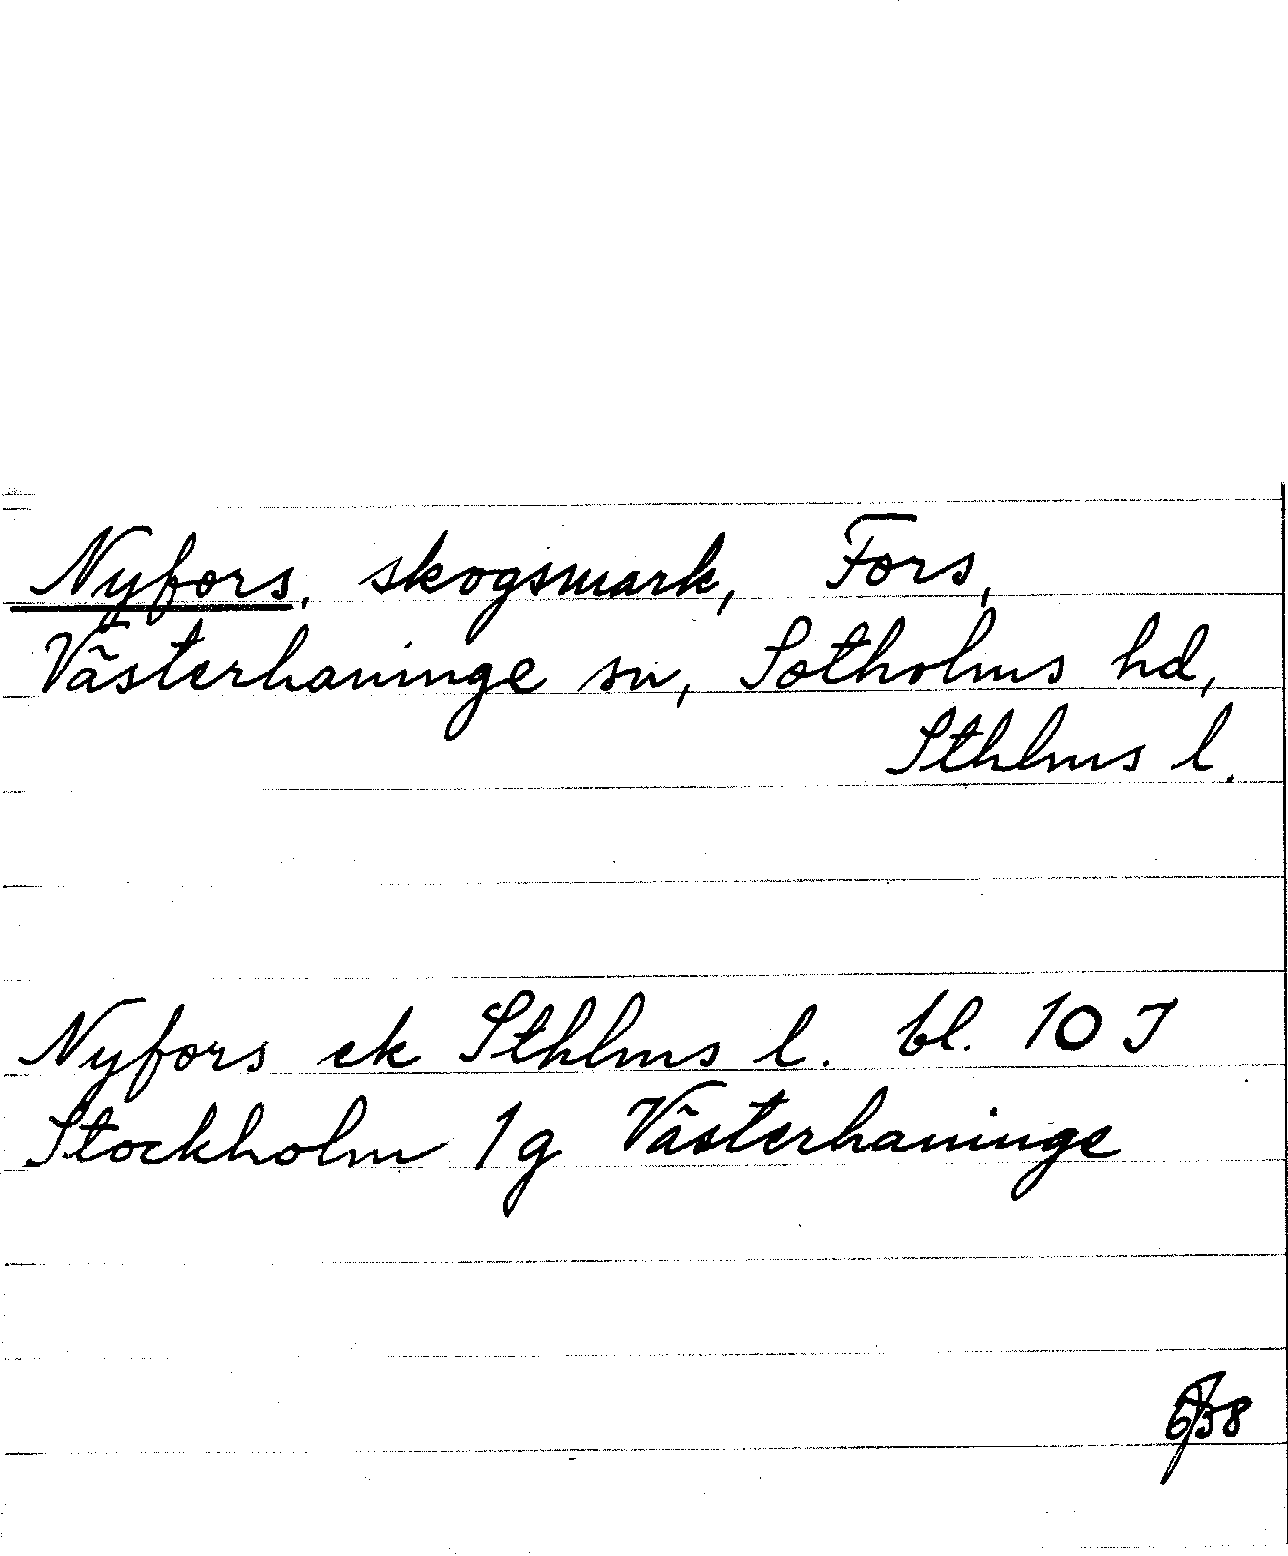 Nyfors, skogsmark, Fors,
Västerhaninge sn, Sotholms hd,
Sthlms l.
Nyfors ek Sthlms l. bl. 10 I
Stockholm 1g Västerhaninge